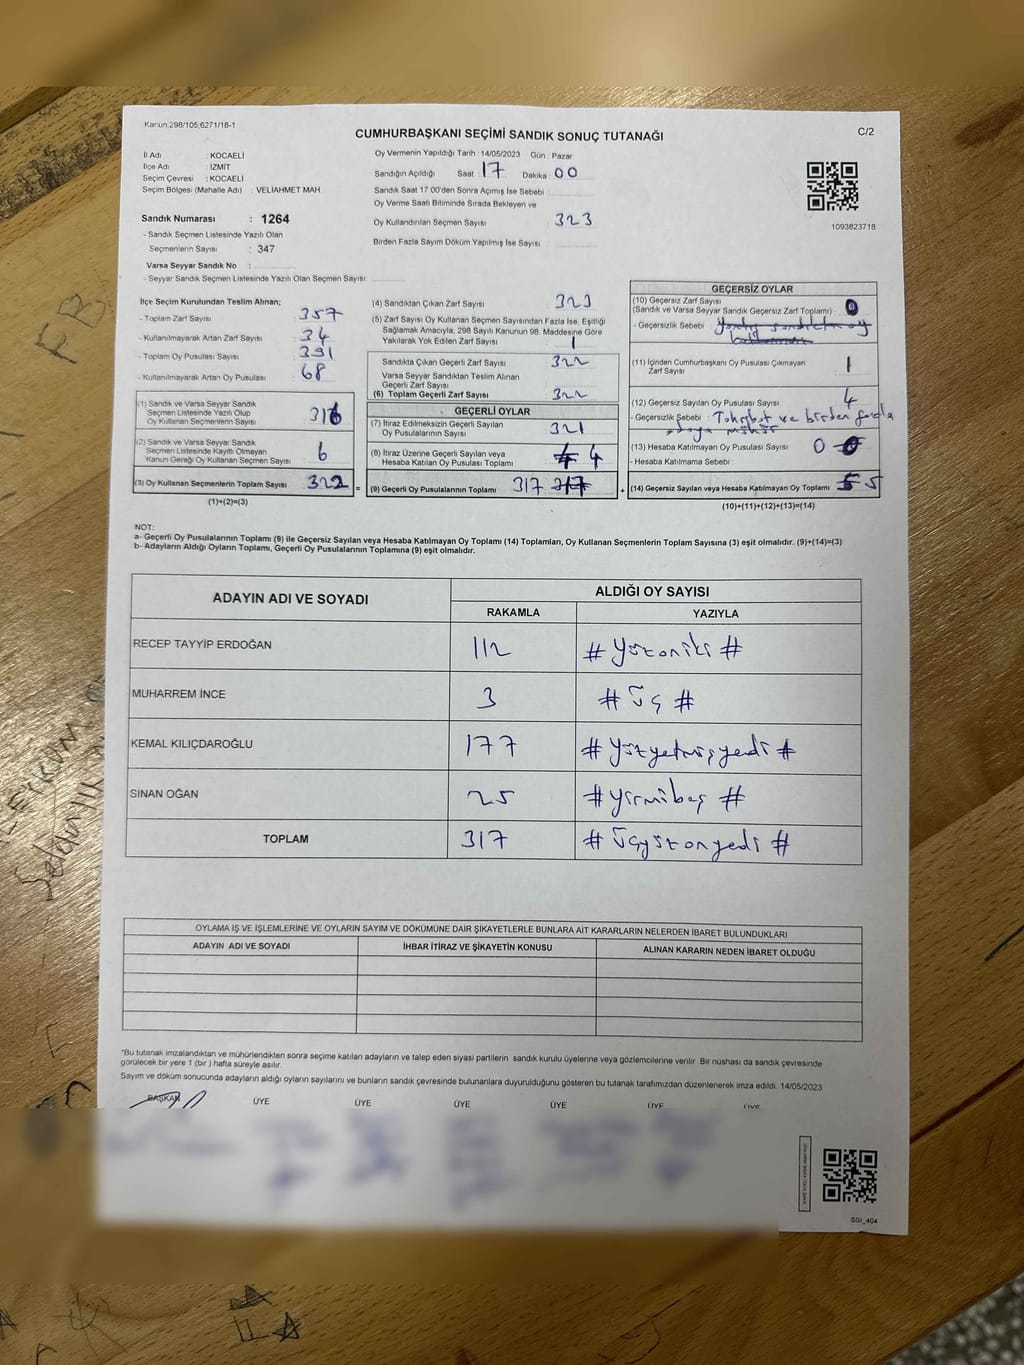 Kanun:298/105;6271/18-1
CUMHURBAŞKANI SEÇİMİ SANDIK SONUÇ TUTANAĞI
C/2
İl Adı : KOCAELİ
İlçe Adı : İZMİT
Seçim Çevresi : KOCAELİ
Seçim Bölgesi (Mahalle Adı) : VELİAHMET MAH
Sandık Numarası : 1264
- Sandık Seçmen Listesinde Yazılı Olan
Seçmenlerin Sayısı : 347
Varsa Seyyar Sandık No :
- Seyyar Sandık Seçmen Listesinde Yazılı Olan Seçmen Sayısı:
Oy Vermenin Yapıldığı Tarih : 14/05/2023 Gün : Pazar
Sandığın Açıldığı Saat : 17 Dakika : 00
Sandık Saat 17.00'den Sonra Açılmış İse Sebebi
Oy Verme Saati Bitiminde Sırada Bekleyen ve
Oy Kullandırılan Seçmen Sayısı 323
Birden Fazla Sayım Döküm Yapılmış İse Sayısı
1093823718
İlçe Seçim Kurulundan Teslim Alınan;
- Toplam Zarf Sayısı 357
- Kullanılmayarak Artan Zarf Sayısı 34
- Toplam Oy Pusulası Sayısı 391
- Kullanılmayarak Artan Oy Pusulası 68
(1) Sandık ve Varsa Seyyar Sandık
Seçmen Listesinde Yazılı Olup
Oy Kullanan Seçmenlerin Sayısı 316
(2) Sandık ve Varsa Seyyar Sandık
Seçmen Listesinde Kayıtlı Olmayan
Kanun Gereği Oy Kullanan Seçmen Sayısı 6
(3) Oy Kullanan Seçmenlerin Toplam Sayısı 322 =
(1)+(2)=(3)
(4) Sandıktan Çıkan Zarf Sayısı 323
(5) Zarf Sayısı Oy Kullanan Seçmen Sayısından Fazla İse, Eşitliği
Sağlamak Amacıyla, 298 Sayılı Kanunun 98. Maddesine Göre
Yakılarak Yok Edilen Zarf Sayısı 1
Sandıkta Çıkan Geçerli Zarf Sayısı 322
Varsa Seyyar Sandıktan Teslim Alınan
Geçerli Zarf Sayısı
(6) Toplam Geçerli Zarf Sayısı 322
GEÇERLİ OYLAR
(7) İtiraz Edilmeksizin Geçerli Sayılan
Oy Pusulalarının Sayısı 321
(8) İtiraz Üzerine Geçerli Sayılan veya
Hesaba Katılan Oy Pusulası Toplamı 4 4
(9) Geçerli Oy Pusulalarının Toplamı 317 317 +
GEÇERSİZ OYLAR
(10) Geçersiz Zarf Sayısı
(Sandık ve Varsa Seyyar Sandık Geçersiz Zarf Toplamı) 0
- Geçersizlik Sebebi : Yanlış sandıktan oy
(11) İçinden Cumhurbaşkanı Oy Pusulası Çıkmayan
Zarf Sayısı 1
(12) Geçersiz Sayılan Oy Pusulası Sayısı 4
- Geçersizlik Sebebi : Tahribat ve birden fazla
adaya mühür
(13) Hesaba Katılmayan Oy Pusulası Sayısı 0 0
- Hesaba Katılmama Sebebi
(14) Geçersiz Sayılan veya Hesaba Katılmayan Oy Toplamı 5 5
(10)+(11)+(12)+(13)=(14)
NOT:
a- Geçerli Oy Pusulalarının Toplamı (9) ile Geçersiz Sayılan veya Hesaba Katılmayan Oy Toplamı (14) Toplamları, Oy Kullanan Seçmenlerin Toplam Sayısına (3) eşit olmalıdır. (9)+(14)=(3)
b- Adayların Aldığı Oyların Toplamı, Geçerli Oy Pusulalarının Toplamına (9) eşit olmalıdır.
ADAYIN ADI VE SOYADI
ALDIĞI OY SAYISI
RAKAMLA YAZIYLA
RECEP TAYYİP ERDOĞAN 112 # Yüzoniki #
MUHARREM İNCE 3 # Üç #
KEMAL KILIÇDAROĞLU 177 # Yüzyetmişyedi #
SİNAN OĞAN 25 # Yirmibeş #
TOPLAM 317 # Üçyüzonyedi #
OYLAMA İŞ VE İŞLEMLERİNE VE OYLARIN SAYIM VE DÖKÜMÜNE DAİR ŞİKAYETLERLE BUNLARA AİT KARARLARIN NELERDEN İBARET BULUNDUKLARI
ADAYIN ADI VE SOYADI
İHBAR İTİRAZ VE ŞİKAYETİN KONUSU
ALINAN KARARIN NEDEN İBARET OLDUĞU
*Bu tutanak imzalandıktan ve mühürlendikten sonra seçime katılan adayların ve talep eden siyasi partilerin sandık kurulu üyelerine veya gözlemcilerine verilir. Bir nüshası da sandık çevresinde
görülecek bir yere 1 (bir) hafta süreyle asılır.
Sayım ve döküm sonucunda adayların aldığı oyların sayılarını ve bunların sandık çevresinde bulunanlara duyurulduğunu gösteren bu tutanak tarafımızdan düzenlenerek imza edildi. 14/05/2023
BAŞKAN ÜYE ÜYE ÜYE ÜYE ÜYE ÜYE
SSI_404
FB